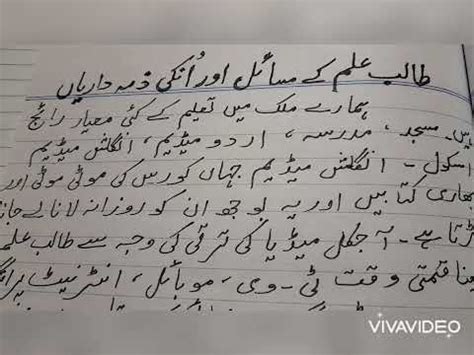 طالب علم کے مسائل اور اُنکی ذمہ داریاں
ہمارے ملک میں تعلیم کے کئی معیار رائج
ہیں۔ مسجد، مدرسہ، اردو میڈیم، انگلش میڈیم
اسکول۔ انگلش میڈیم جہاں کورس کی موٹی موٹی اور
بھاری کتابیں اور یہ بوجھ ان کو روزانہ لانا لے جانا
پڑتا ہے۔ آجکل میڈیا کی ترقی کی وجہ سے طالب علم
اپنا قیمتی وقت ٹی-وی، موبائل، انٹرنیٹ پر
VIVAVIDEO